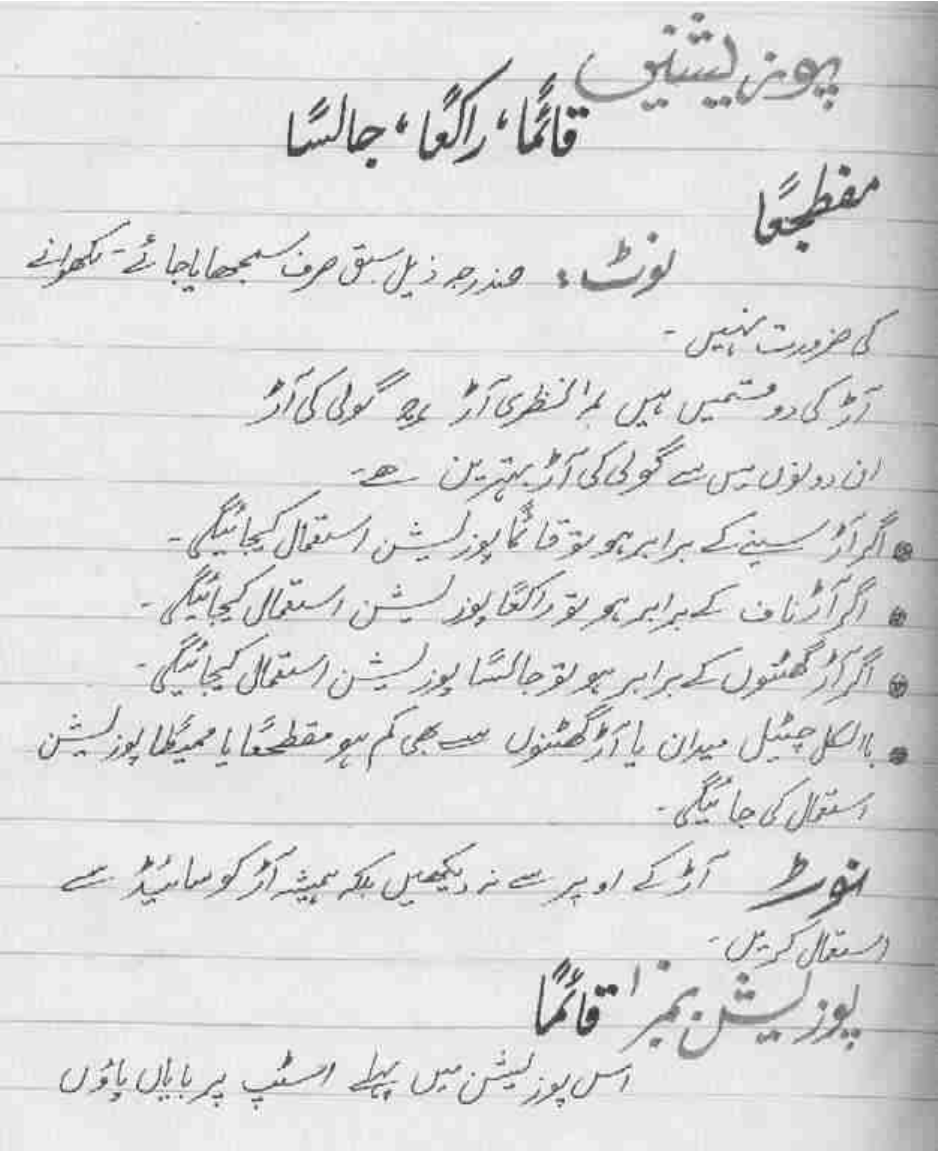 پوزیشنیں
قائمًا، راکعًا، جالسًا
مفطجعًا
نوٹ: مندرجہ ذیل سبق صرف سمجھایا جائے۔ لکھوانے
کی ضرورت نہیں۔
آڑ کی دو قسمیں ہیں نمبر۱ نظری آڑ نمبر۲ گولی کی آڑ
ان دونوں میں سے گولی کی آڑ بہترین ھے۔
اگر آڑ سینے کے برابر ہو تو قائمًا پوزیشن استعمال کیجائیگی۔
اگر آڑ ناف کے برابر ہو تو راکعًا پوزیشن استعمال کیجائیگی۔
اگر آڑ گھٹنوں کے برابر ہو تو جالسًا پوزیشن استعمال کیجائیگی۔
بالکل چٹیل میدان یا آڑ گھٹنوں سے بھی کم ہو مقطجعًا یا پوزیشن
استعمال کی جائیگی۔
نوٹ آڑ کے اوپر سے نہ دیکھیں بلکہ ہمیشہ آڑ کو سائیڈ سے
استعمال کریں۔
پوزیشن نمبر ۱ قائمًا
اس پوزیشن میں پہلے اسٹپ پر بایاں پاؤں